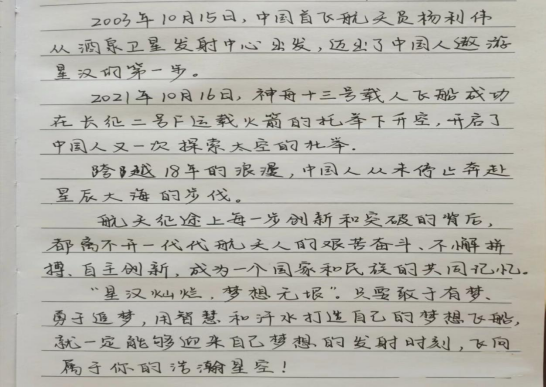 2003年10月15日，中国首飞航天员杨利伟
从酒泉卫星发射中心出发，迈出了中国人遨游
星汉的第一步。
2021年10月16日，神舟十三号载人飞船成功
在长征二号F运载火箭的托举下升空，开启了
中国人又一次探索太空的托举.
跨越18年的浪漫，中国人从未停止奔赴
星辰大海的步伐。
航天征途上每一步创新和突破的背后，
都离不开一代代航天人的艰苦奋斗、不懈拼
搏、自主创新，成为一个国家和民族的共同记忆。
“星汉灿烂，梦想无垠”。只要敢于有梦、
勇于追梦，用智慧和汗水打造自己的梦想飞船，
就一定能够迎来自己梦想的发射时刻，飞向
属于你的浩瀚星空！